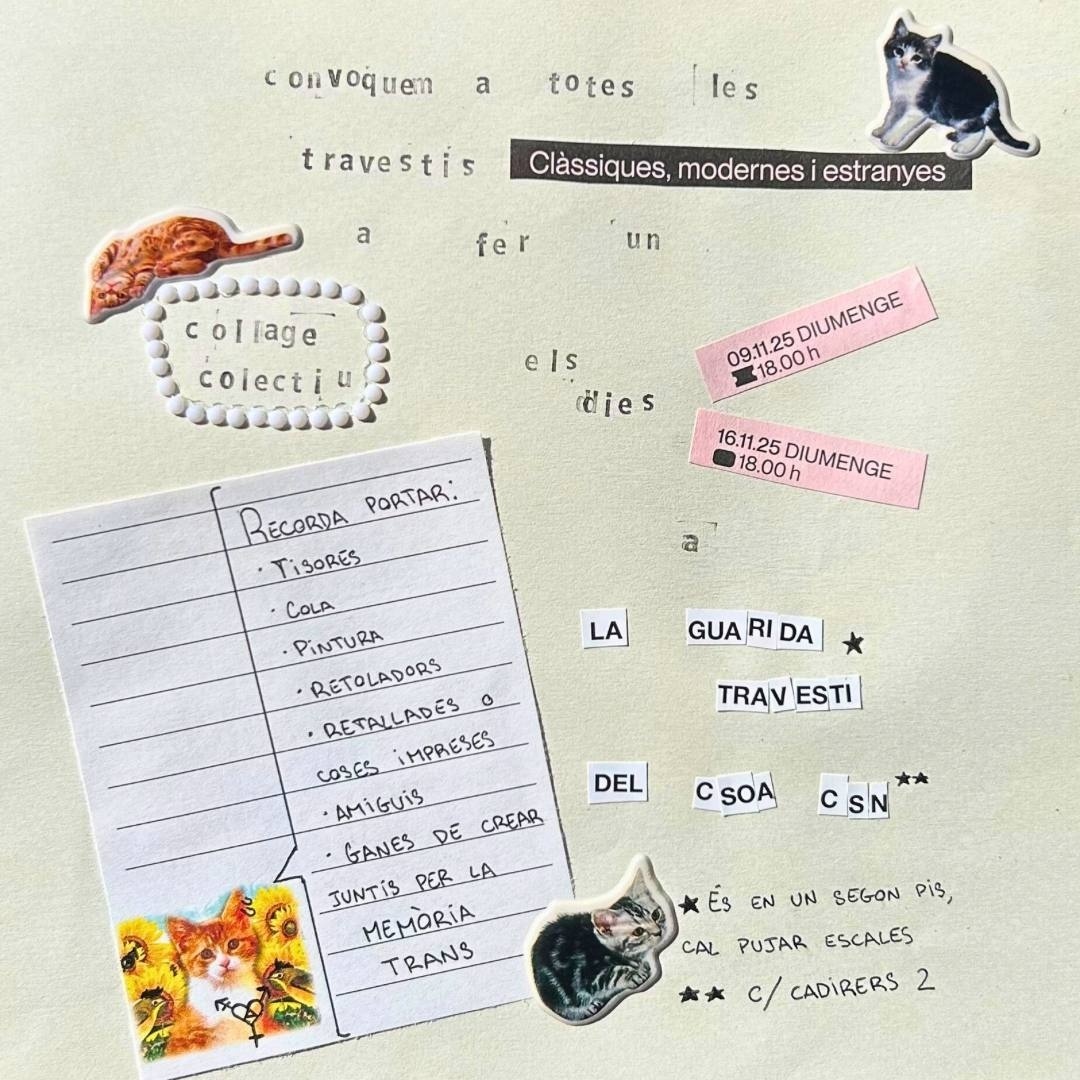 convoquem a totes les
travestis Clàssiques, modernes i estranyes
a fer un
collage
colectiu
els
dies
09.11.25 DIUMENGE
18.00 h
16.11.25 DIUMENGE
18.00 h
a
LA GUARIDA ★
TRAVESTI
DEL CSOA CSN ★★
★ ÉS EN UN SEGON PIS,
CAL PUJAR ESCALES
★★ C/ CADIRERS 2
RECORDA PORTAR:
· TISORES
· COLA
· PINTURA
· RETOLADORS
· RETALLADES O
COSES IMPRESES
· AMIGUIS
· GANES DE CREAR
JUNTIS PER LA
MEMÒRIA
TRANS